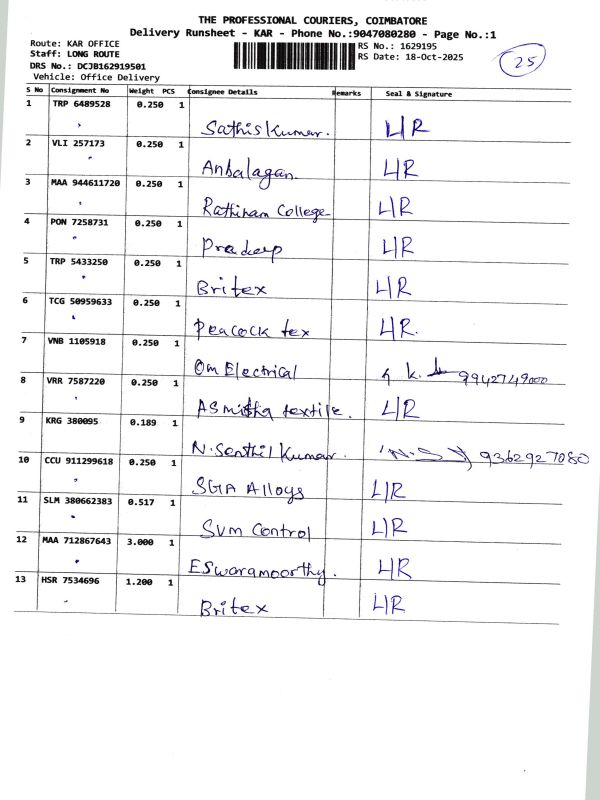 THE PROFESSIONAL COURIERS, COIMBATORE
Delivery Runsheet - KAR - Phone No.:9047080280 - Page No.:1
Route: KAR OFFICE RS No.: 1629195
Staff: LONG ROUTE RS Date: 18-Oct-2025 25
DRS No.: DCJB162919501
Vehicle: Office Delivery
S No Consignment No Weight PCS Consignee Details Remarks Seal & Signature
1 TRP 6489528 0.250 1
Sathis Kumar. L/R
2 VLI 257173 0.250 1
Anbalagan. L/R
3 MAA 944611720 0.250 1
Rathinam College L/R
4 PON 7258731 0.250 1
Pradeep L/R
5 TRP 5433250 0.250 1
Britex L/R
6 TCG 50959633 0.250 1
Peacock tex L/R.
7 VNB 1105918 0.250 1
Om Electrical K. 9942749000
8 VRR 7587220 0.250 1
Asmitha textile. L/R
9 KRG 380095 0.189 1
N.Senthil Kumar. 9362927080
10 CCU 911299618 0.250 1
SGA Alloys L/R
11 SLM 380662383 0.517 1
SVM Control L/R
12 MAA 712867643 3.000 1
Eswaramoorthy. L/R
13 HSR 7534696 1.200 1
Britex L/R